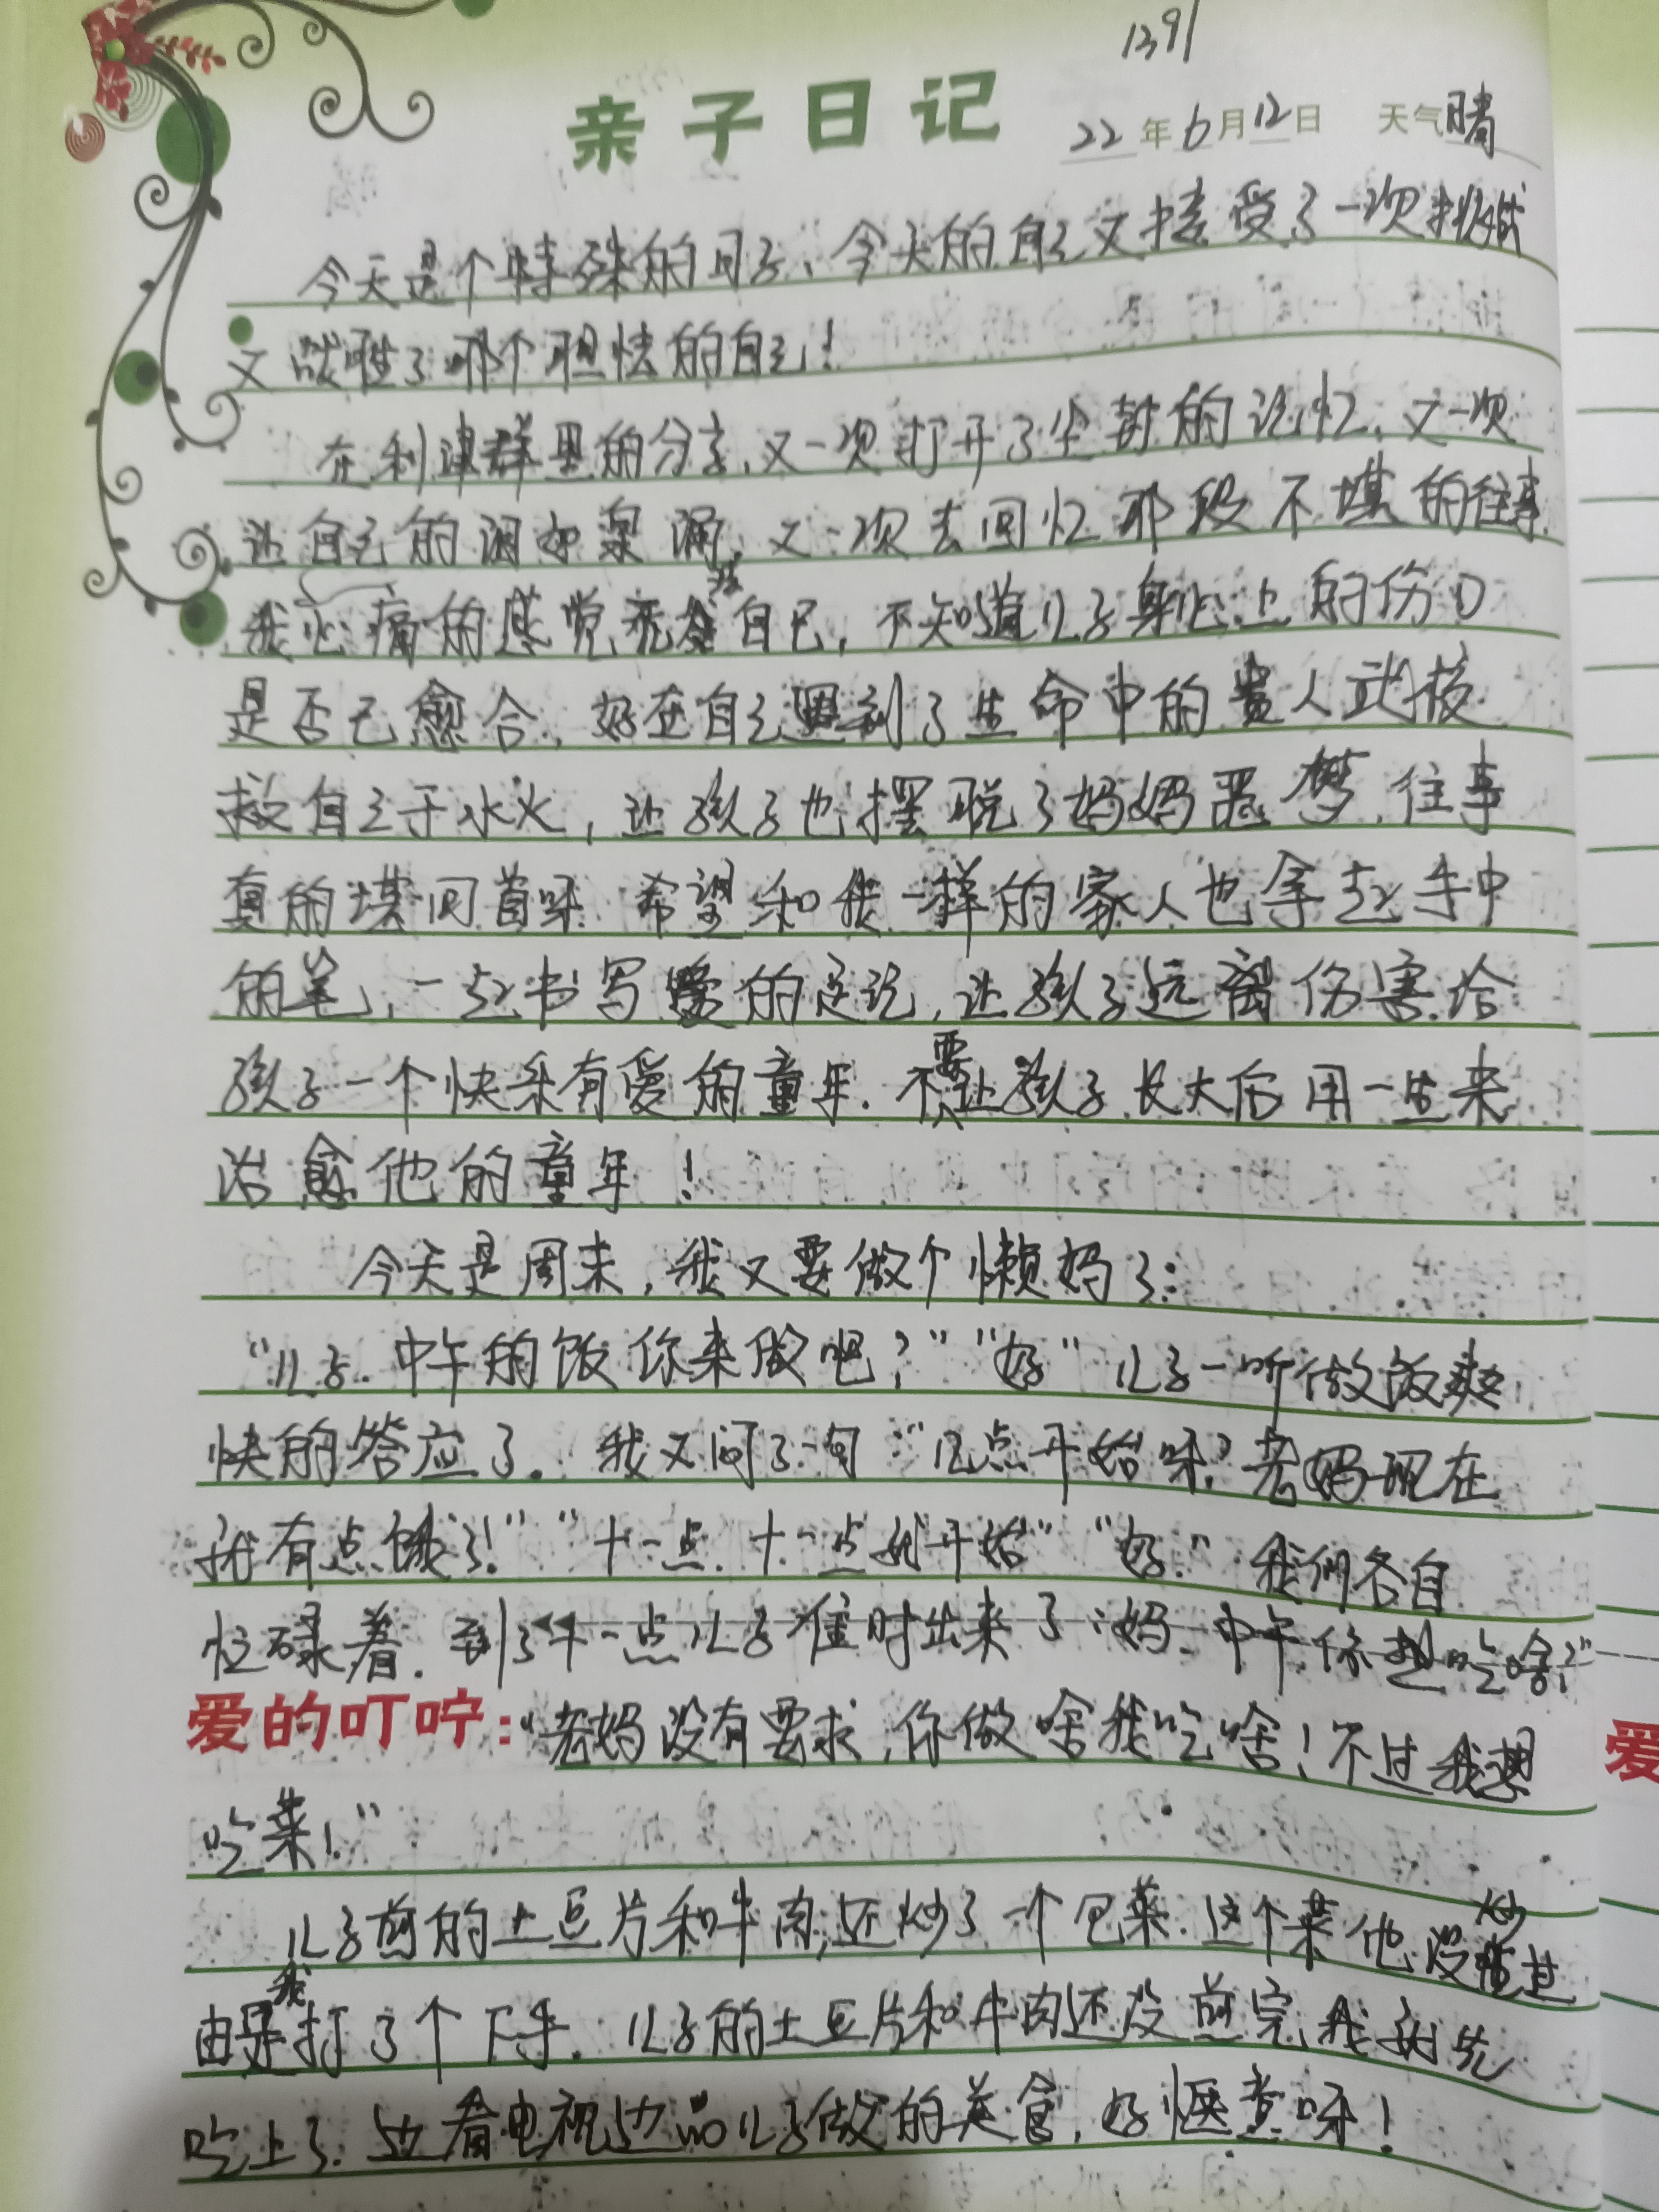 1391
亲子日记 22年6月12日 天气晴
今天是个特殊的日子、今天的自己又接受了一次挑战
又战胜了那个胆怯的自己!
在利津群里的分享,又一次打开了尘封的记忆,又一次
让自己的泪如泉涌,又一次去回忆那段不堪的往事.
我心痛的感觉无法自已,不知道儿子身心上的伤口
是否已愈合,好在自己遇到了生命中的贵人武校
救自己于水火,让孩子也摆脱了妈妈恶梦,往事
真的堪回首呀.希望和我一样的家人也拿起手中
的笔,一起书写爱的日记,让孩子远离伤害.给
孩子一个快乐有爱的童年.不要让孩子长大后用一生来
治愈他的童年!
今天是周末,我又要做个懒妈了:
“儿子.中午的饭你来做吧?”“好”儿子一听做饭爽
快的答应了。我又问了一句:“几点开始呀?老妈现在
就有点饿了!”“十一点.十一点就开始”“好.”我们各自
忙碌着.到了十一点儿子准时出来了:“妈.中午你想吃啥?”
爱的叮咛:“老妈没有要求,你做啥我吃啥!不过我想
吃菜!”
儿子煎的土豆片和牛肉,还炒了一个包菜.这个菜他没炒过
由我打了个下手.儿子的土豆片和牛肉还没煎完我就先
吃上了.边看电视边品儿子做的美食,好惬意呀!
爱